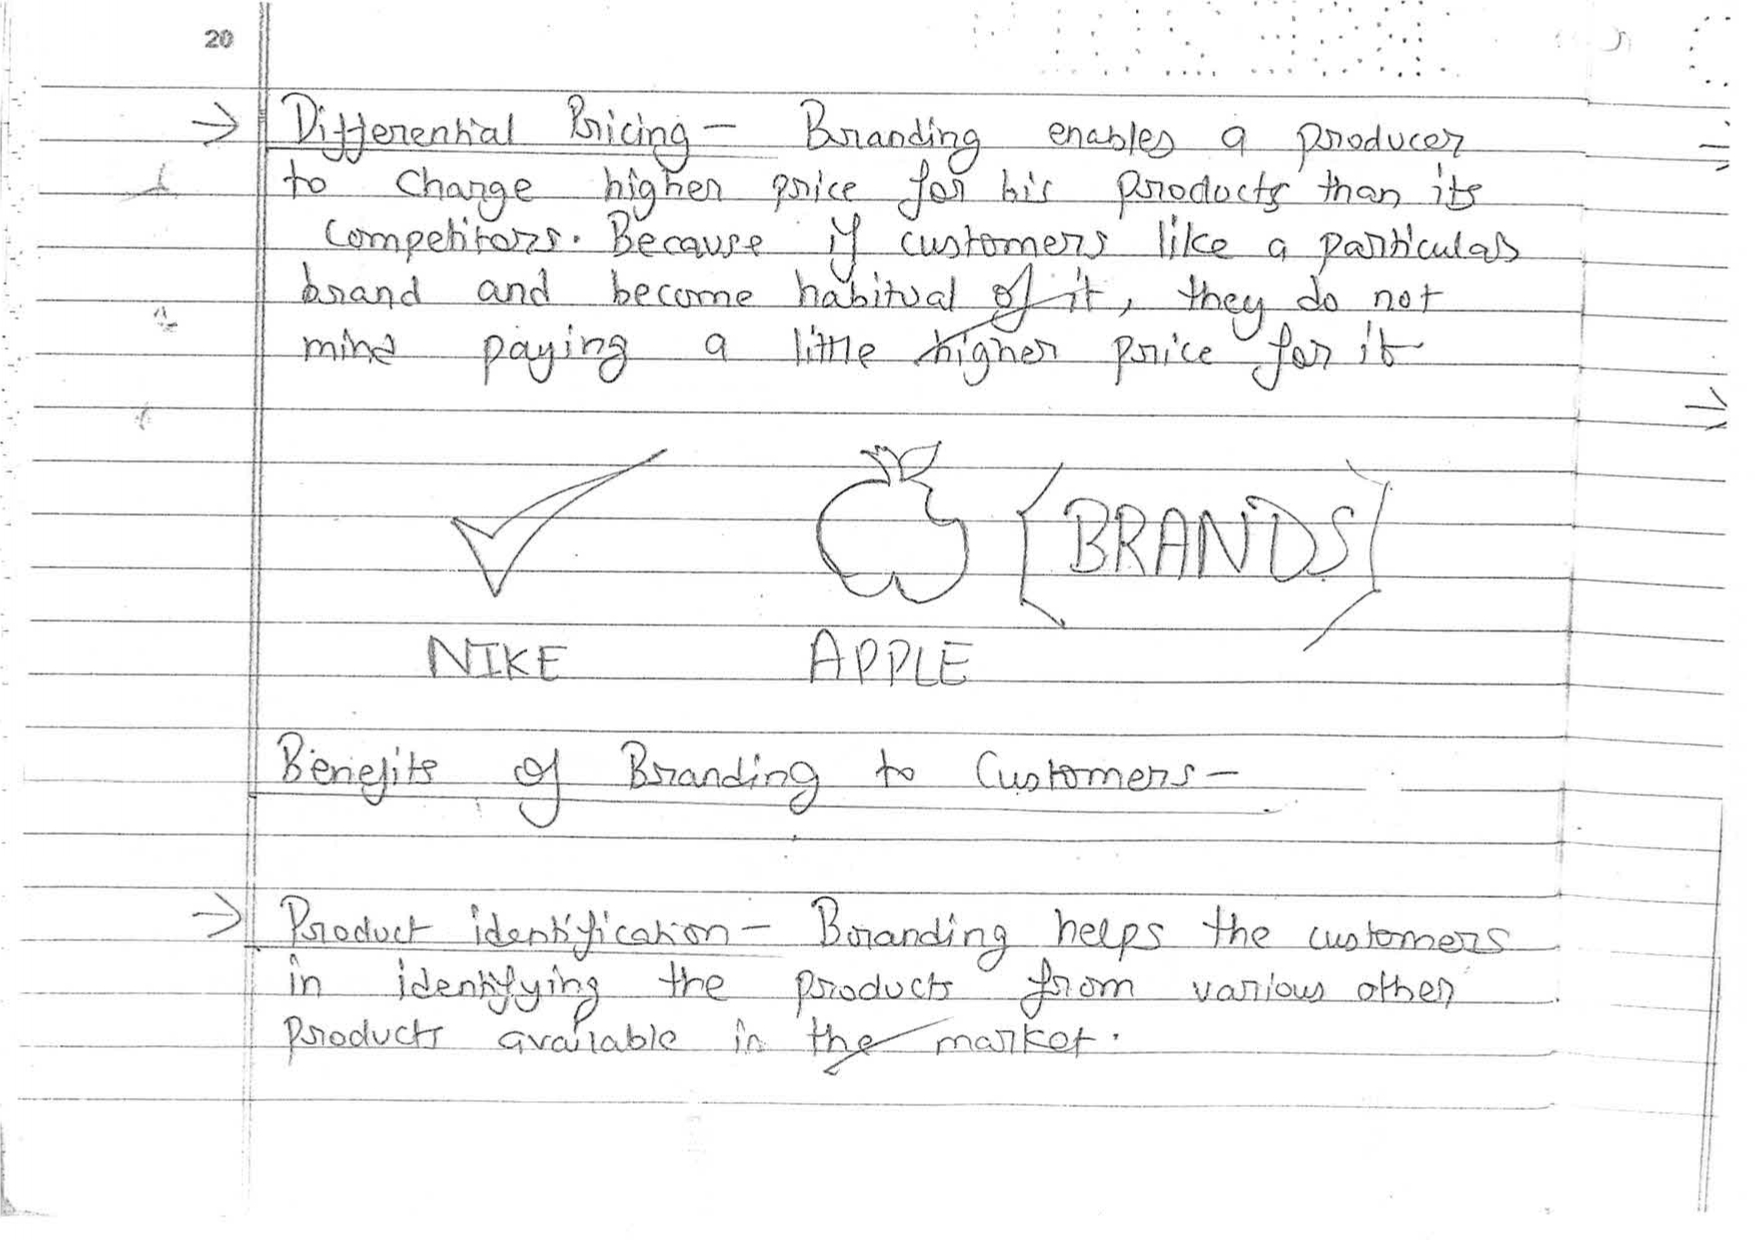 20
→ Differential Pricing - Branding enables a producer
to charge higher price for his products than its
competitors. Because if customers like a particular
brand and become habitual of it, they do not
mind paying a little higher price for it
NIKE APPLE BRANDS
Benefits of Branding to Customers -
→ Product identification - Branding helps the customers
in identifying the products from various other
products available in the market.